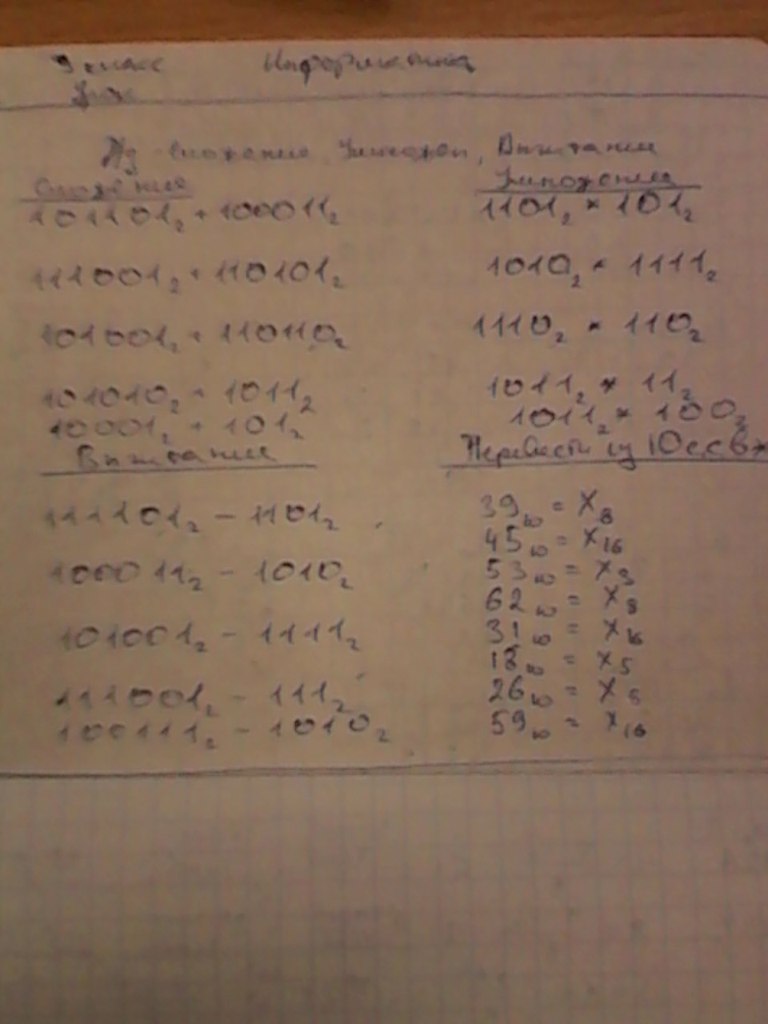 9 класс Информатика
Дз сложение, Умножен, Вычитание
Сложение
101101₂ + 100011₂
111001₂ + 110101₂
101001₂ + 110110₂
101010₂ + 1011₂
10001₂ + 101₂
Умножение
1101₂ × 101₂
1010₂ × 1111₂
1110₂ × 110₂
1011₂ × 11₂
1011₂ × 100₂
Вычитание
111101₂ – 1101₂
100011₂ – 1010₂
101001₂ – 1111₂
111001₂ – 111₂
100111₂ – 1010₂
Перевести из 10 с.с в
39₁₀ = X₈
45₁₀ = X₁₆
53₁₀ =
62₁₀ = X�8
31₁₀ = X₁₆
18₁₀ = X₅
26₁₀ =
59₁₀ = X₁₆